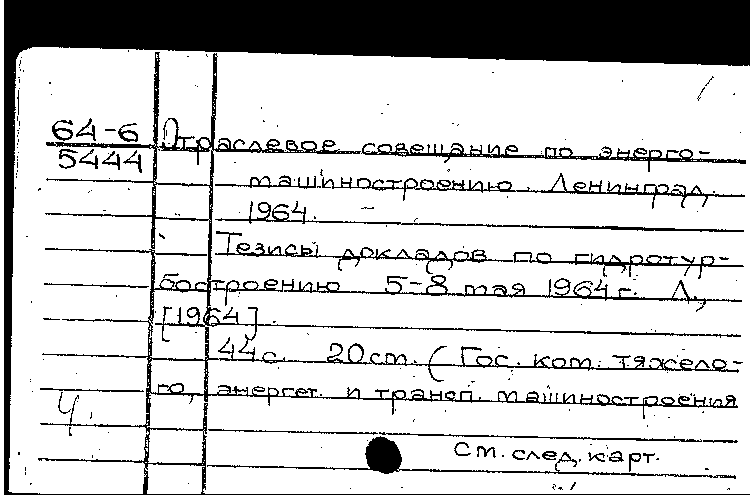 64-6 Отраслевое совещание по энерго-
5444
машиностроению. Ленинград,
1964.
Тезисы докладов по гидротур-
бостроению 5-8 мая 1964 г. Л.,
[1964].
44 с. 20 см. (Гос. ком. тяжело-
го, энергет. и трансп. машиностроения
Ч.
См. след. карт.